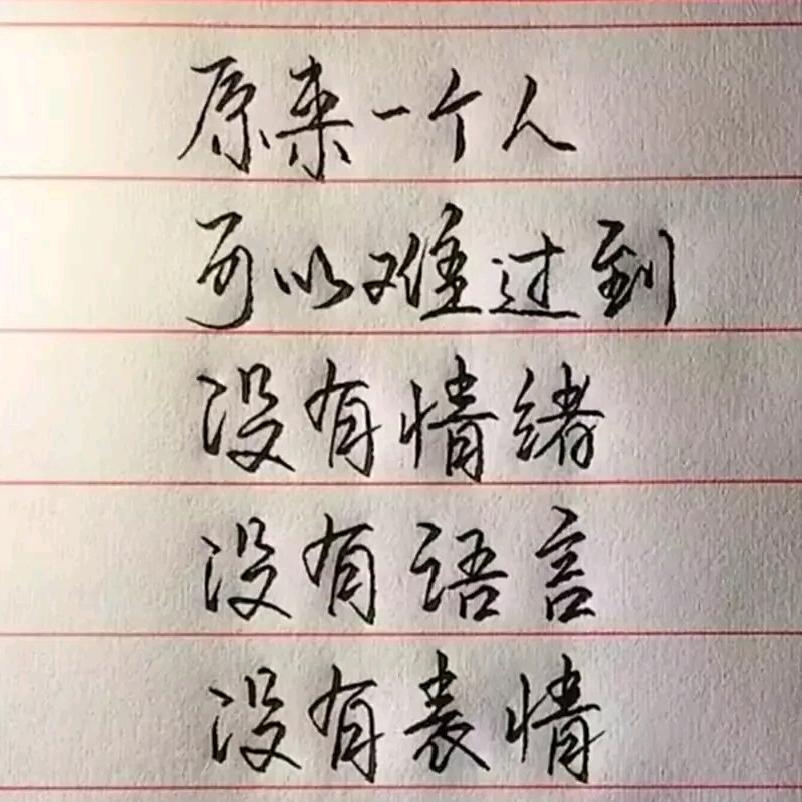 原来一个人
可以难过到
没有情绪
没有语言
没有表情